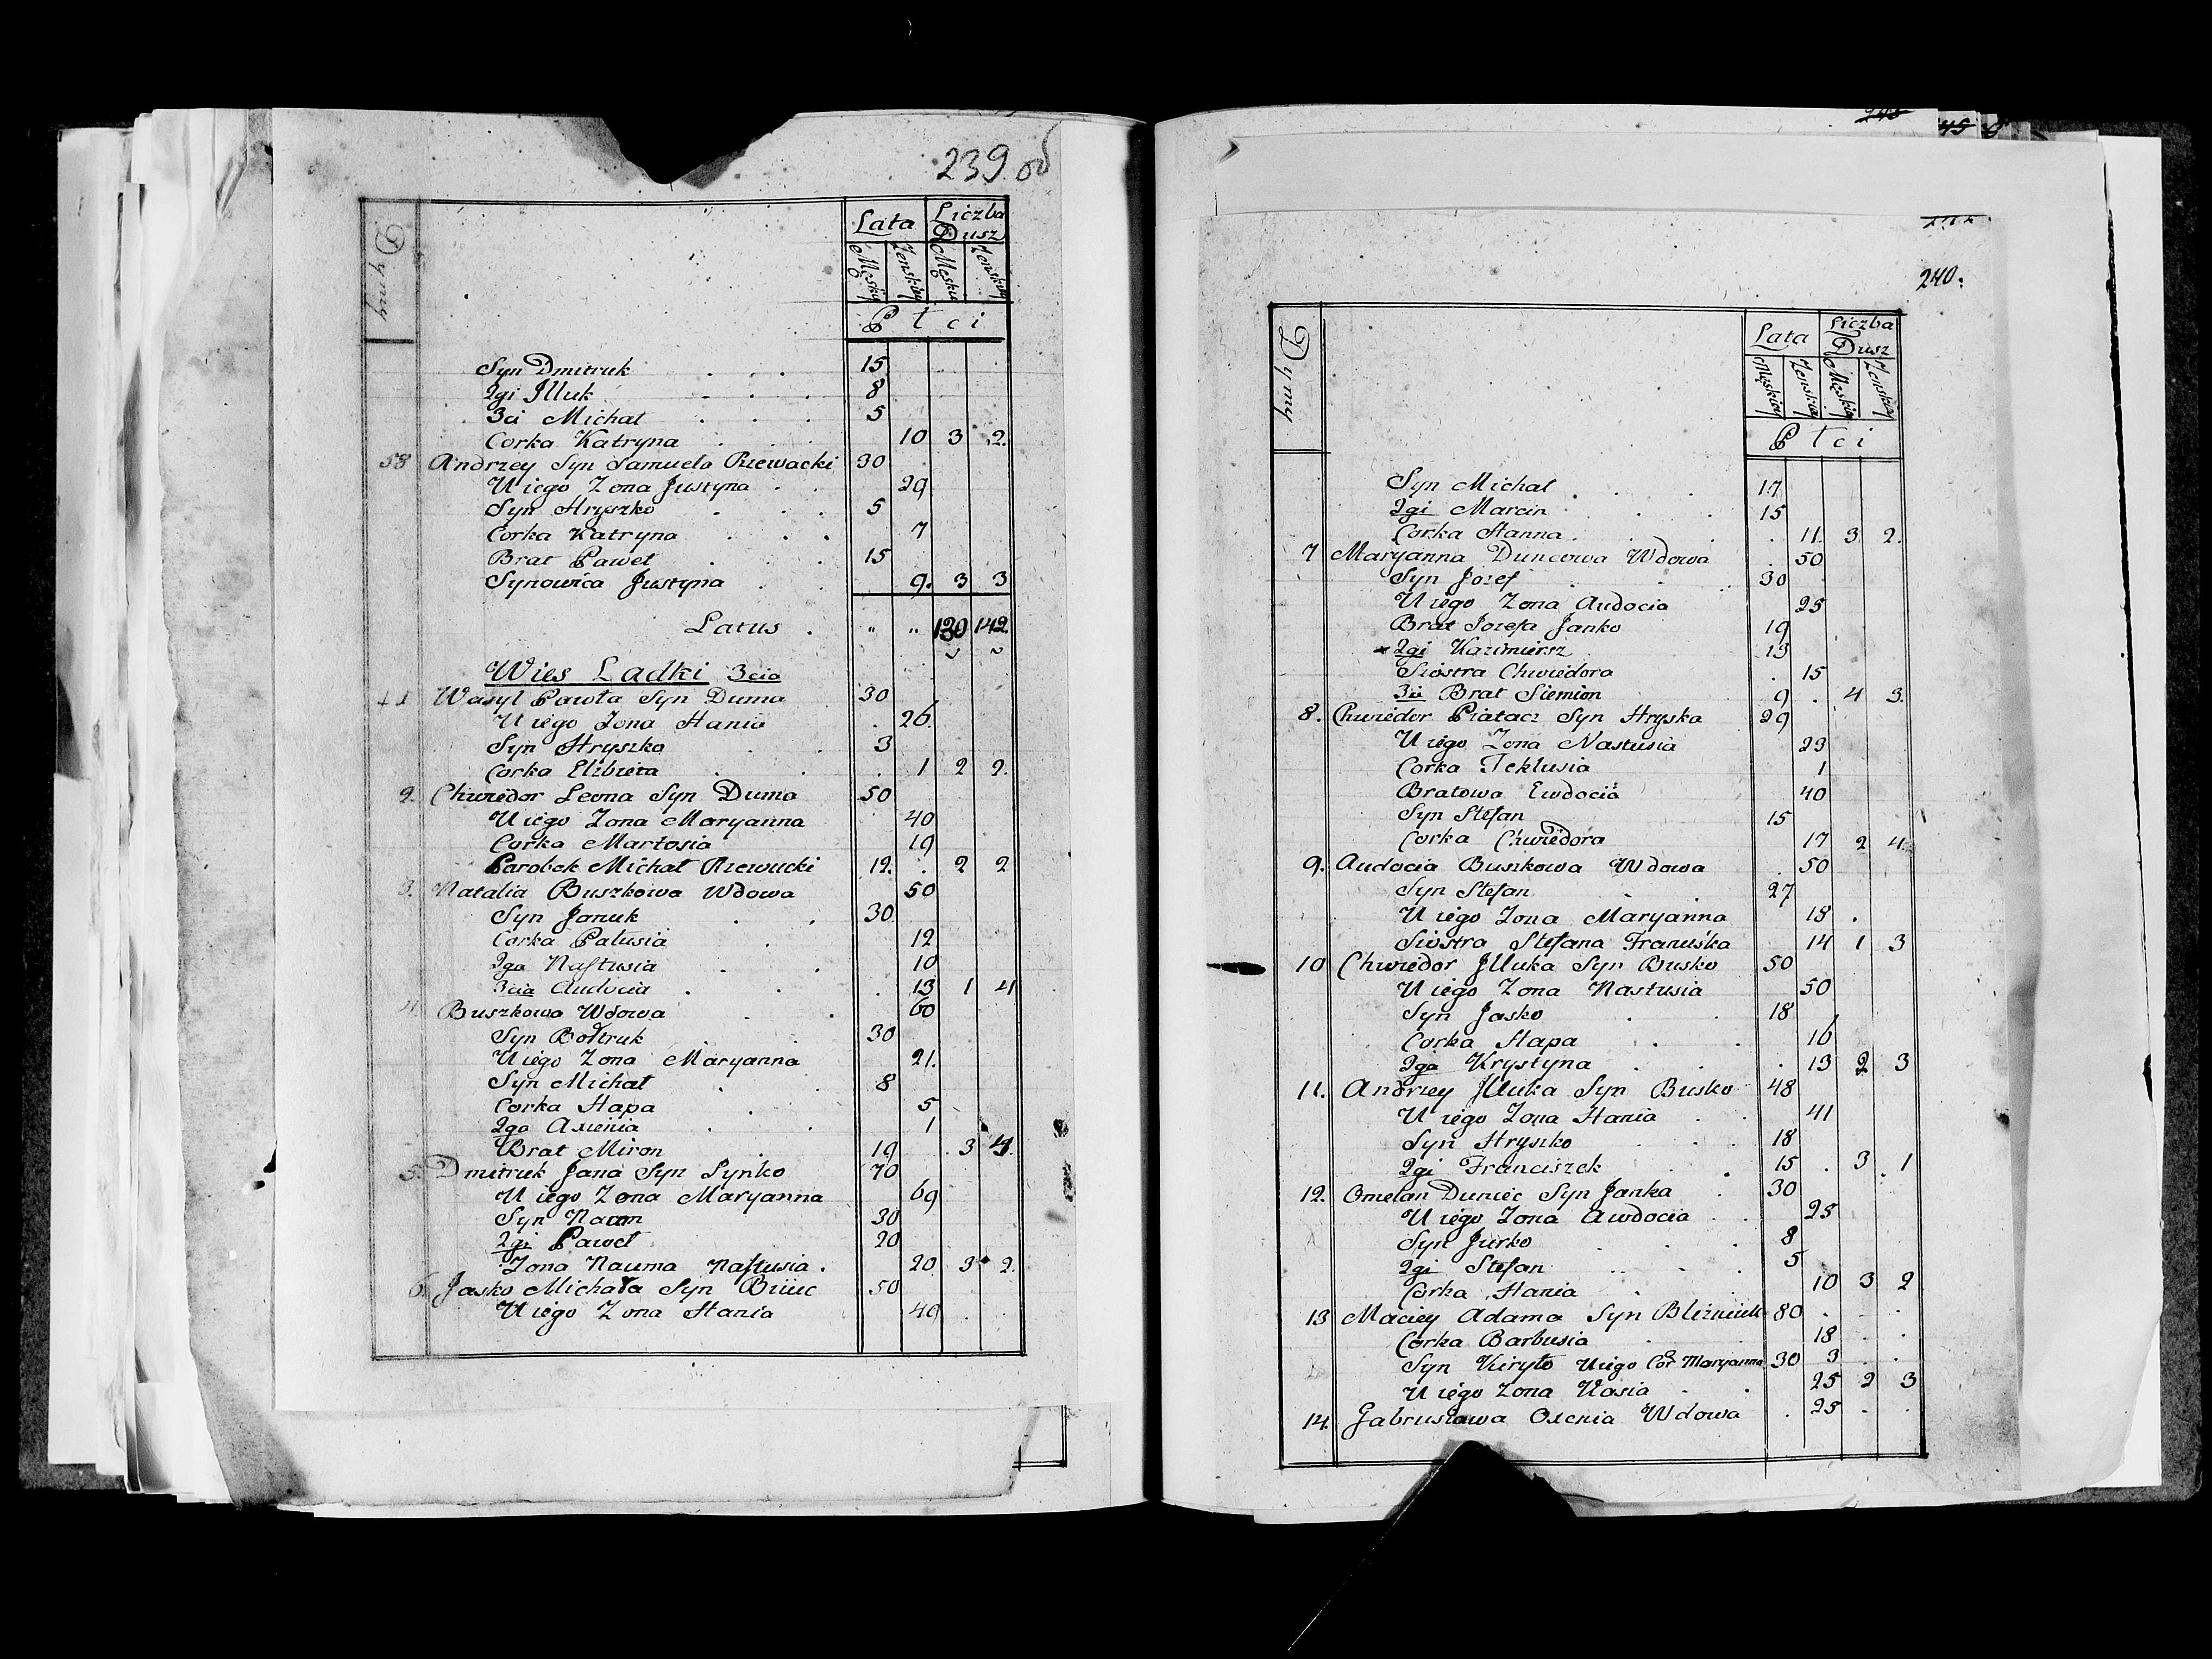 239 об
Dymy
Lata Liczba Dusz
Męskiey Zenskiey Męskiey Zenskiey
Płci
Syn Dmitruk . . . 15
2gi Illuk . . . 8
3ci Michał . . . 5
Corka Katryna . . . 10 3 2.
58 Andrzey Syn Samuela Rzewacki 30
U iego Zona Justyna . . 29
Syn Hryszko . . . 5
Corka Katryna . . . 7
Brat Paweł . . . 15
Synowica Justyna . . 9. 3 3
Latus . " " 130 142.
Wies Ladki 3cia
1 Wasyl Pawła Syn Duma 30
U iego Zona Hania . 26.
Syn Hryszko . . 3
Corka Elzbieta . . . 1 2 2.
2. Chwiedor Leona Syn Duma 50
U iego Zona Maryanna 40
Corka Martosia 19
Parobek Michał Rzewucki 12. . 2 2
3. Natalia Buszkowa Wdowa 50
Syn Januk . . 30
Corka Patusia . 12
2ga Nastusia . . 10
3cia Audocia . . . 13 1 4
4. Buszkowa Wdowa . . 60
Syn Bołtruk . . 30
U iego Zona Maryanna 21.
Syn Michał . . 8
Corka Hapa . 5
2ga Axienia . . 1
Brat Miron . 19 . 3 4.
5. Dmitruk Jana Syn Synko 70
U iego Zona Maryanna 69
Syn Naum 30
2gi Paweł 20
Zona Nauma Nastusia . 20 3 2.
6. Jasko Michała Syn Briiuc 50
U iego Zona Hania 40 . .
240.
Dymy
Lata Liczba Dusz
Męskiey Zenskiey Męskiey Zenskiey
Płci
Syn Michał . . . 17
2gi Marcin . . . 15
Corka Hanna . . . . 11. 3. 2.
7 Maryanna Duncowa Wdowa . 50
Syn Jozef . . . 30
U iego Zona Audocia 25
Brat Jozefa Janko 19
2gi Kazimiersz 13
Siostra Chwiedora . 15
3ci Brat Siemion 9 . 4 3.
8. Chwiedor Piatacz Syn Hryska 29
U iego Zona Nastusia 23
Corka Teklusia 1
Bratowa Ewdocia 40
Syn Stefan 15
Corka Chwiedora 17 2 4
9. Audocia Buszkowa Wdowa . 50
Syn Stefan . . 27
U iego Zona Maryanna 18 .
Siostra Stefana Franuśka 14 1 3
10 Chwiedor Illuka Syn Busko 50
U iego Zona Nastusia 50
Syn Jasko . . 18
Corka Hapa . . 16
2ga Krystyna . . . 13 2 3
11. Andrzey Illuka Syn Busko 48
U iego Zona Hania . . 41
Syn Hryszko . . . 18
2gi Franciszek . . 15 . 3 . 1
12. Omelan Duniec Syn Janka . 30
U iego Zona Awdocia . . 25
Syn Jurko . . . 8
2gi Stefan . . . 5
Corka Hania . . 10 3 2
13 Maciey Adama Syn Blizniuk 80 . . .
Corka Barbusia . . 18 . .
Syn Kiryło U iego Cor Maryanna 30 3 . .
U iego Zona Kasia . . 25 2 3
14. Gabrusiawa Oxenia Wdowa . 25 . .